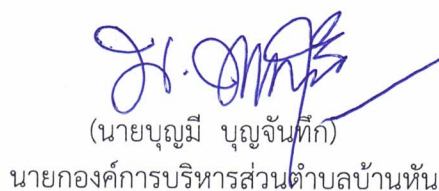 (นายบุญมี บุญจันทึก)
นายกองค์การบริหารส่วนตำบลบ้านหัน